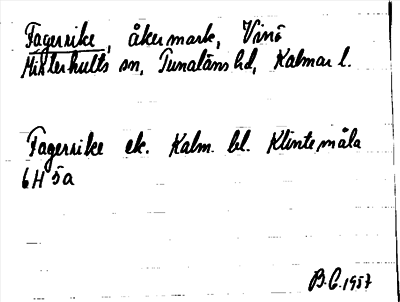 Fagerrike, åkermark, Vinö
Misterhults sn, Tunaläns hd, Kalmar l.
Fagerrike ek. Kalm. bl. Klintemåla
6H 5a
B.G. 1957